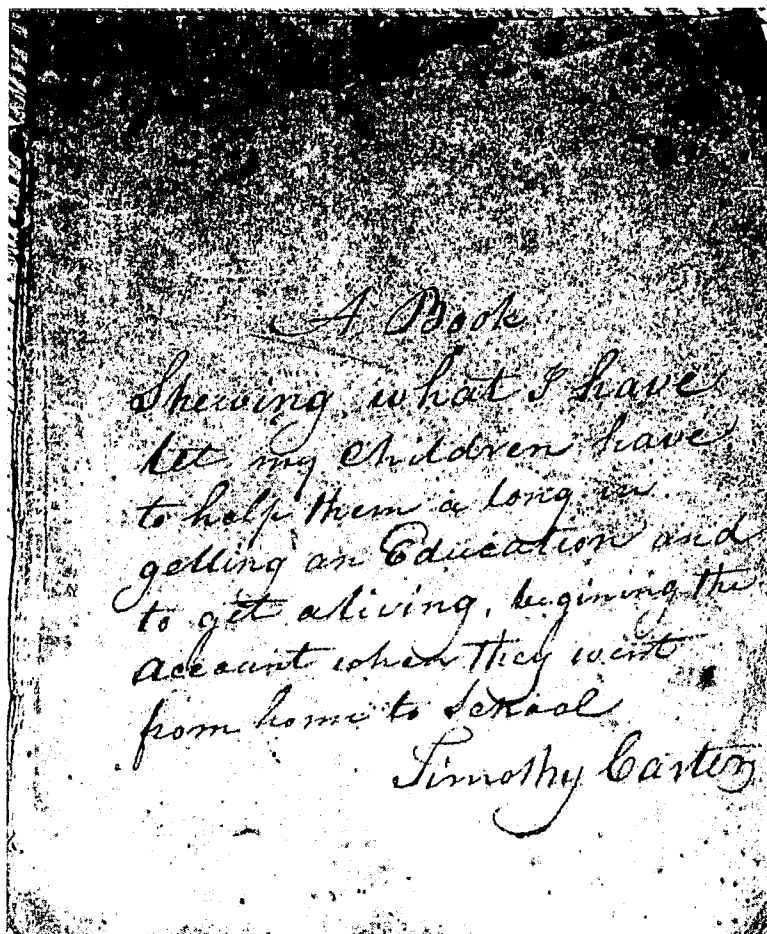 A Book
Shewing what I have
let my Children have
to help them a long in
getting an Education and
to get a living, begining the
account when they went
from home to School
Timothy Carter